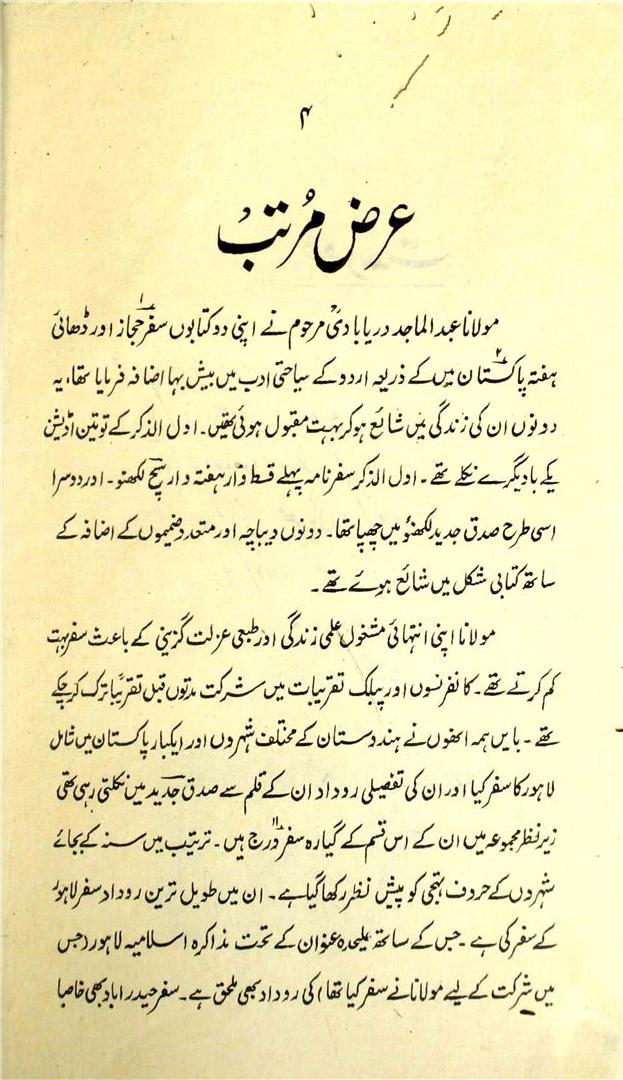 ۴
عرض مُرتب
مولانا عبد الماجد دریابادیؒ مرحوم نے اپنی دو کتابوں سفر حجاز۱ اور ڈھائی
ہفتہ پاکستان۲ میں کے ذریعہ اردو کے سیاحتی ادب میں بیش بہا اضافہ فرمایا تھا، یہ
دونوں ان کی زندگی میں شائع ہو کر بہت مقبول ہوئی تھیں۔ اول الذکر کے تو تین اڈیشن
یکے بادیگرے نکلے تھے۔ اول الذکر سفرنامہ پہلے قسط وار ہفتہ وار سچ لکھنو۔ اور دوسرا
اسی طرح صدق جدید لکھنؤ میں چھپا تھا۔ دونوں دیباچہ اور متعدد ضمیموں کے اضافہ کے
ساتھ کتابی شکل میں شائع ہوئے تھے۔
مولانا اپنی انتہائی مشغول علمی زندگی اور طبعی عزلت گزینی کے باعث سفر بہت
کم کرتے تھے۔ کانفرنسوں اور پبلک تقریبات میں شرکت مدتوں قبل تقریباً ترک کر چکے
تھے۔ بایں ہمہ انھوں نے ہندستان کے مختلف شہروں اور ایکبار پاکستان میں شامل
لاہور کا سفر کیا اور ان کی تفصیلی روداد ان کے قلم سے صدق جدید میں نکلتی رہی تھی
زیر نظر مجموعہ میں ان کے اس قسم کے گیارہ سفر۱۱ درج ہیں۔ ترتیب میں سنہ کے بجائے
شہروں کے حروف تہجی کو پیش نظر رکھا گیا ہے۔ ان میں طویل ترین روداد سفر لاہور
کے سفر کی ہے۔ جس کے ساتھ علیحدہ عنوان کے تحت مذاکرہ اسلامیہ لاہور (جس
میں شرکت کے لیے مولانا نے سفر کیا تھا) کی روداد بھی ملحق ہے۔ سفر حیدرآباد بھی خاصا